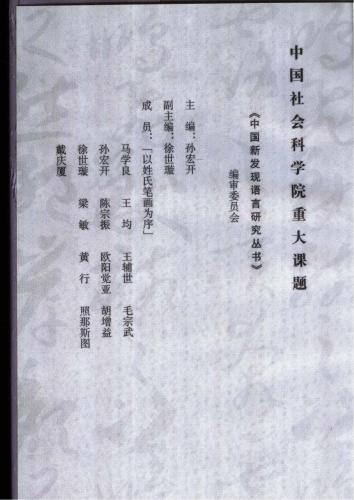 中国社会科学院重大课题
《中国新发现语言研究丛书》
编审委员会
主 编:孙宏开
副主编:徐世璇
成 员:「以姓氏笔画为序」
马学良 王 均 王辅世 毛宗武
孙宏开 陈宗振 欧阳觉亚 胡增益
徐世璇 梁 敏 黄 行 照那斯图
戴庆厦